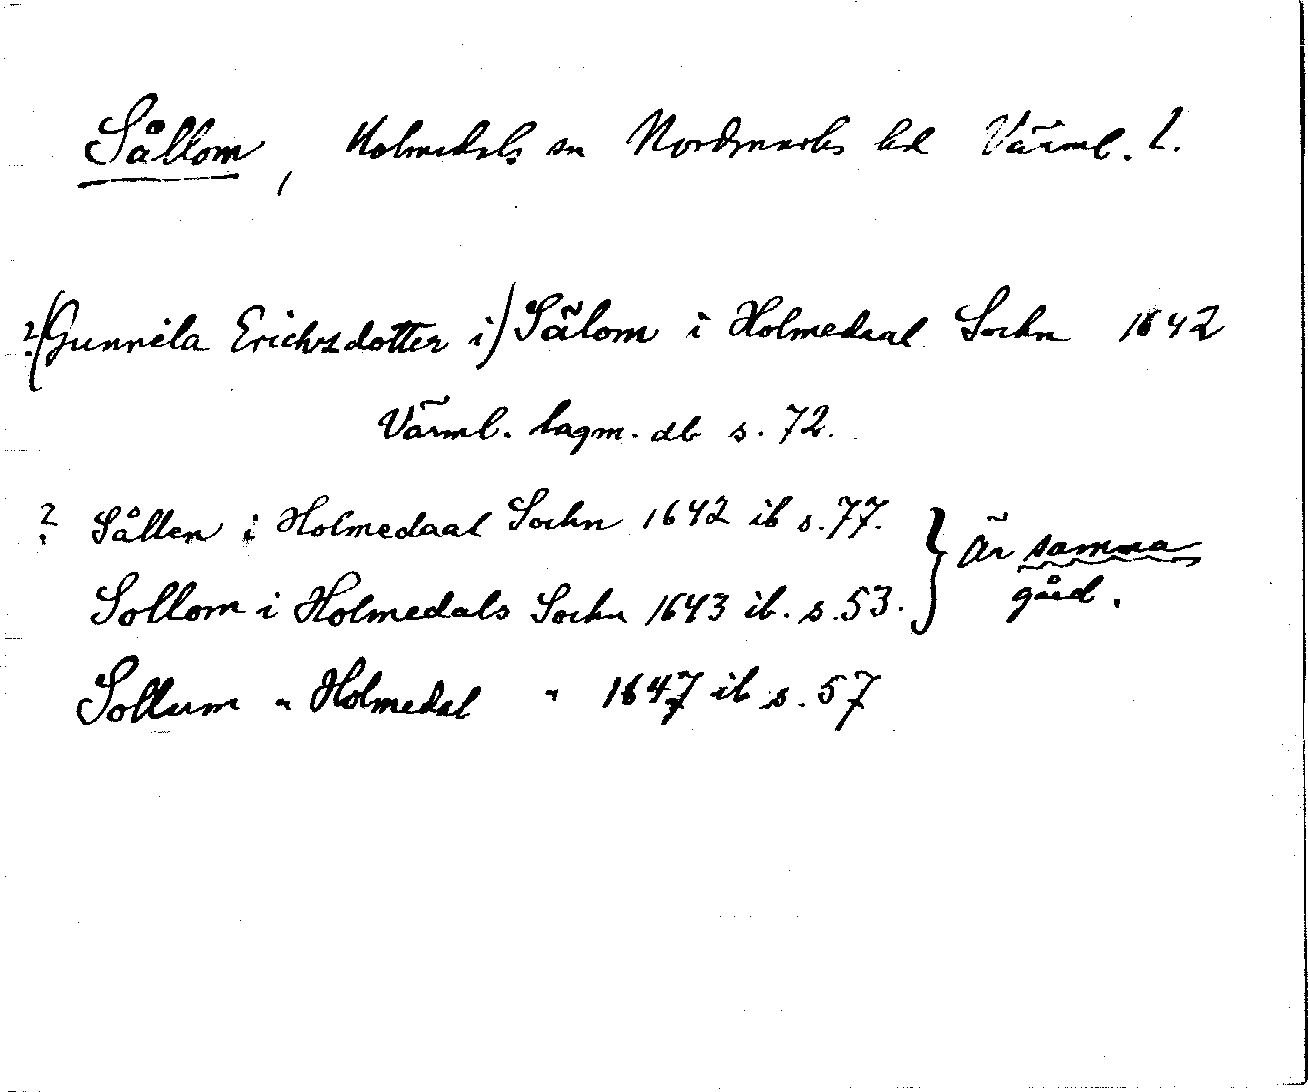 Sållom, Holmedals sn Nordmarks hd Värml. l.
? (Gunnela Erichzdotter i) Sälom i Holmedaal Sochn 1642
Värml. lagm. db s. 72.
? Sållen i Holmedaal Sochn 1642 ib s. 77. } är samma
Sollom i Holmedals Sochn 1643 ib. s. 53. } gård.
Sollum " Holmedal " 1647 ib s. 57